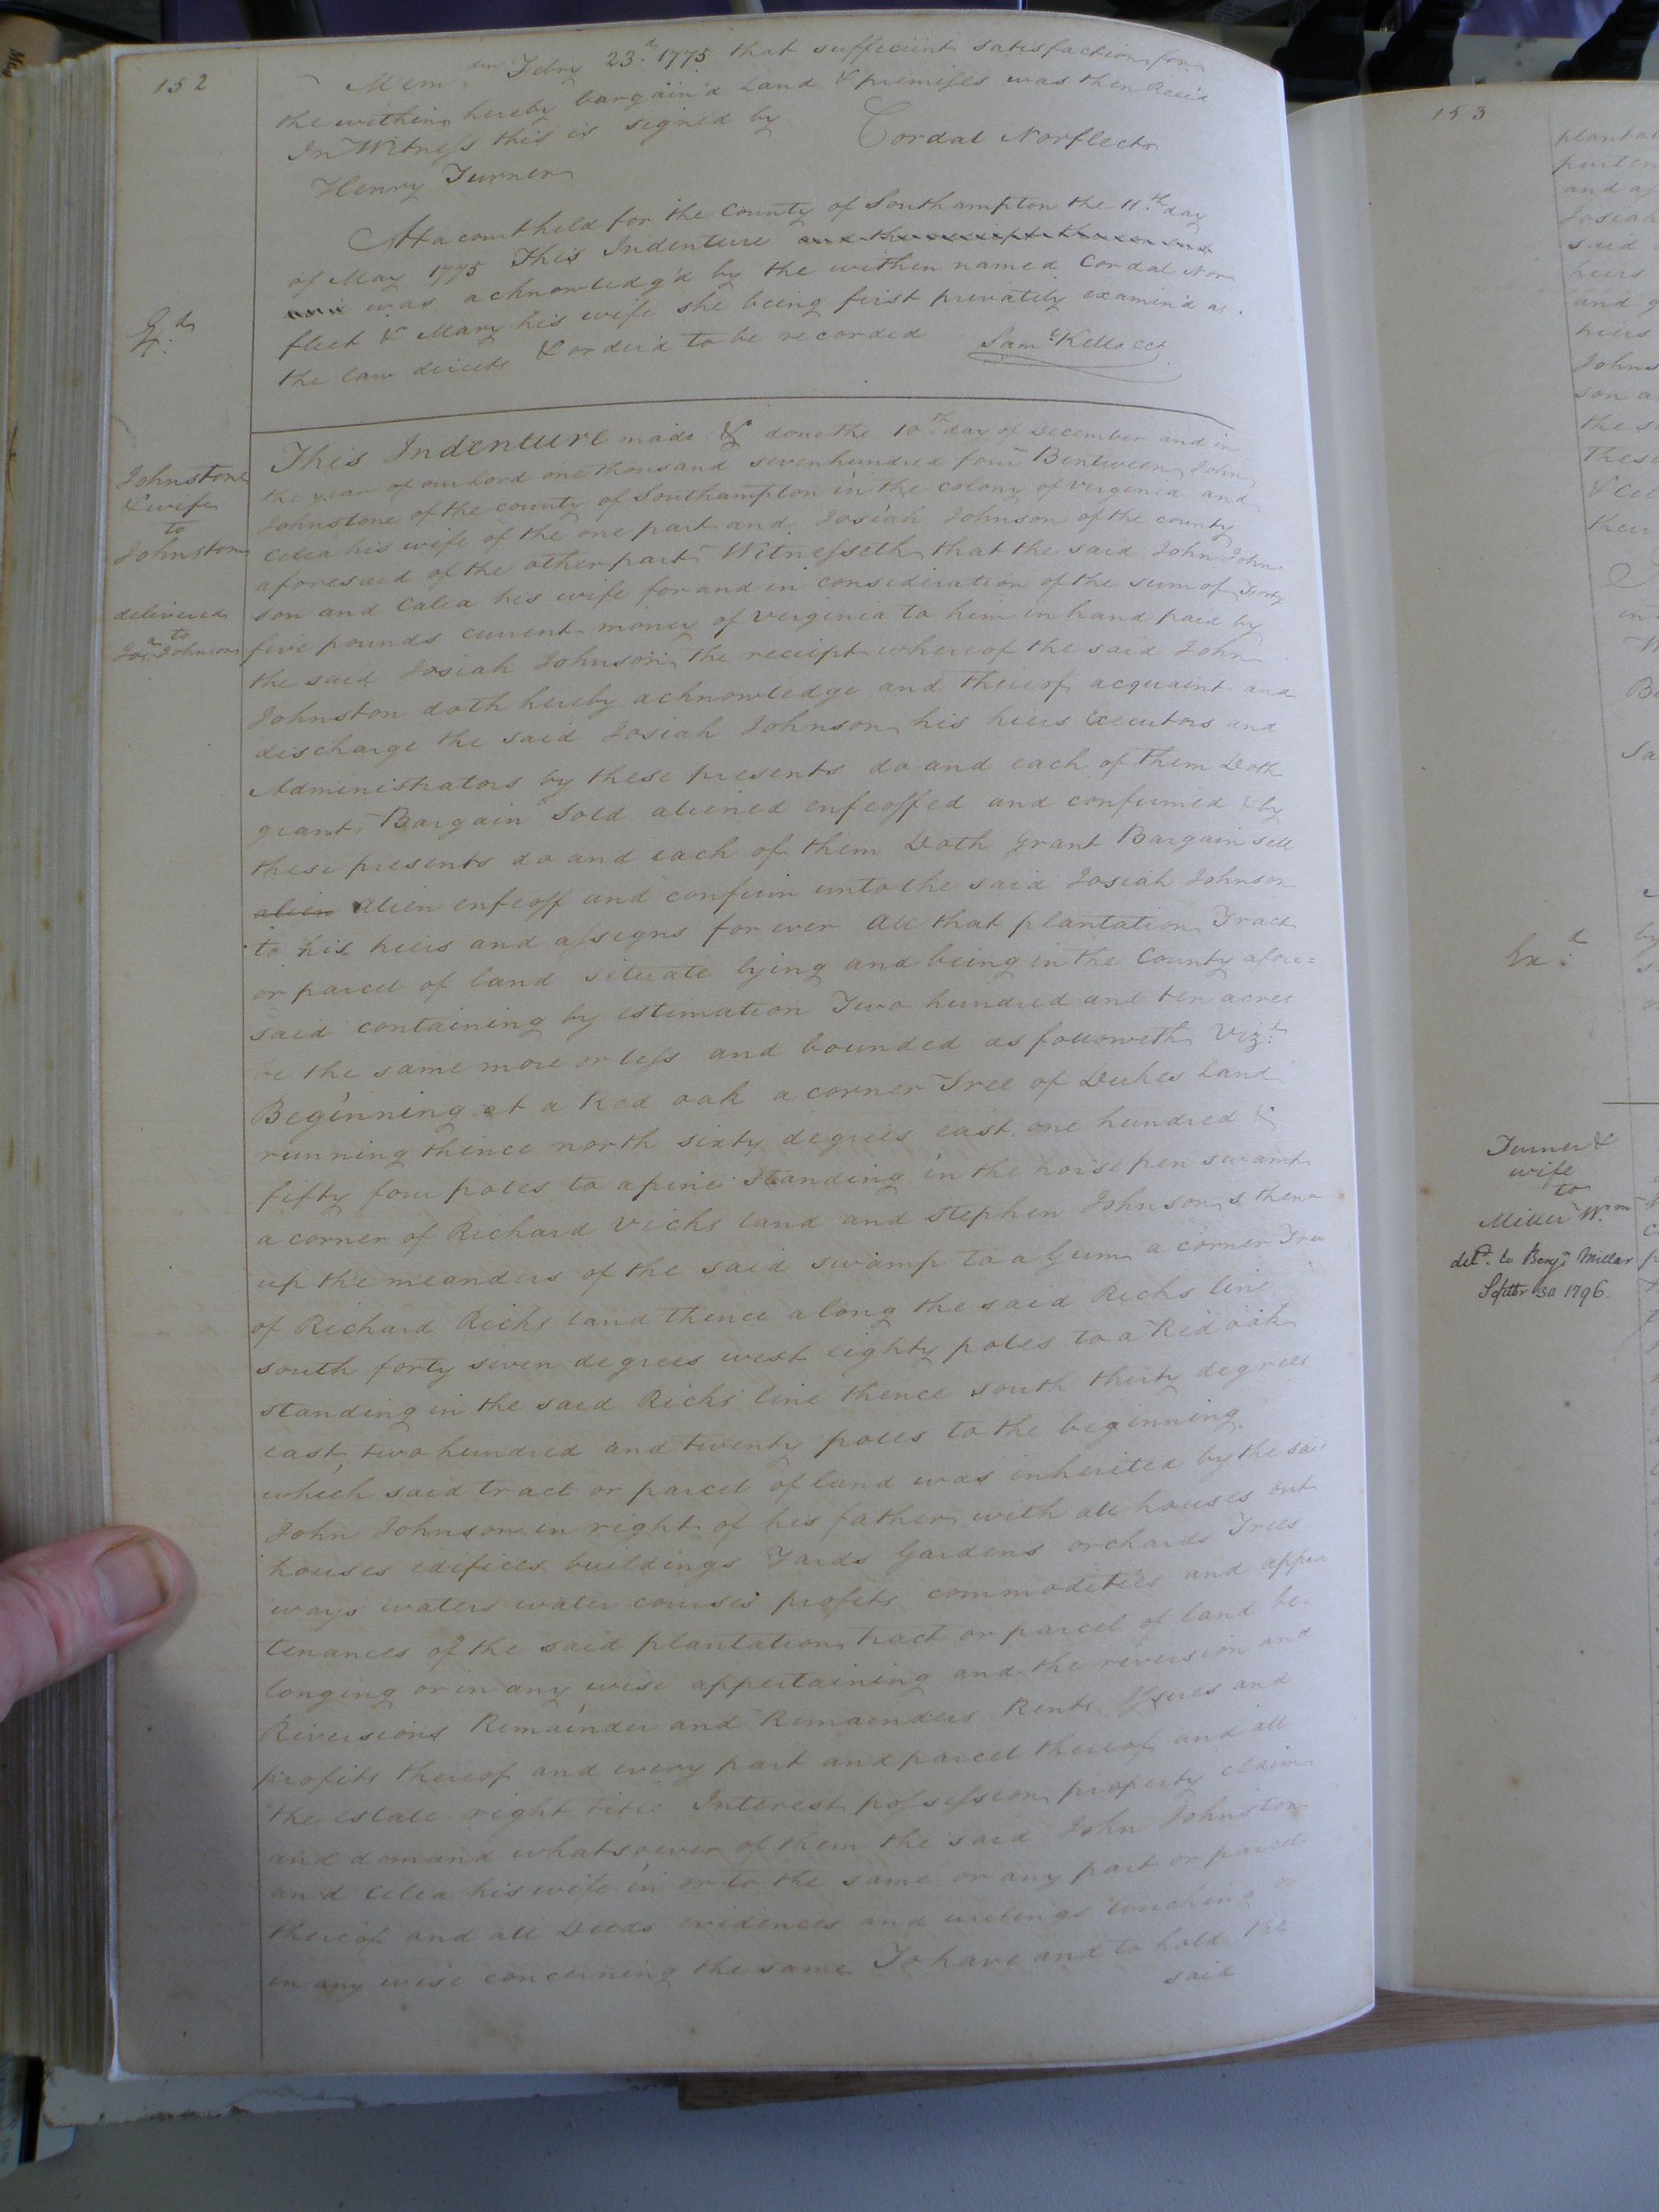 152
Mem.dm Febry 23.d 1775 that sufficient satisfaction for
the within hereby bargain'd Land & premises was then Rece'd
In Witness this is signed by Cordal Norfleet
Henry Turner
At a court held for the County of Southampton the 11.th day
of May 1775 This Indenture
was acknowledg'd by the within named Cordal Nor
fleet & Mary his wife she being first privately examin'd as
the law directs & order'd to be recorded Sam.l Kello CCt
Johnstone
& wife
to
Johnston
delivered
to
Johnson
This Indenture made & done the 10.th day of December and in
the year of our Lord one thousand seven hundred four Bentween John
Johnstone of the county of Southampton in the colony of Verginia and
Celea his wife of the one part and Josiah Johnson of the county
aforesaid of the other part Witnesseth that the said John John
son and Calea his wife for and in consideration of the sum of
five pounds current money of Verginia to him in hand paid by
the said Josiah Johnson the reciept whereof the said John
Johnston doth hereby acknowledge and thereof acquaint and
discharge the said Josiah Johnson his heirs Executors and
Administrators by these presents do and each of them Doth
grant Bargain Sold aliened enfeoffed and confirmed & by
these presents do and each of them Doth Grant Bargain sell
alien Alien enfeoff and confirm unto the said Josiah Johnson
to his heirs and assigns for ever all that plantation Tract
or parcel of land situate lying and being in the County afore=
said containing by estimation Two hundred and ten acres
be the same more or less and bounded as followeth Viz.t
Beginning at a Red oak a corner Tree of Dukes Land
running thence north sixty degrees east one hundred &
fifty four poles to a pine standing in the horse pen swamp
a corner of Richard Vicks land and Stephen Johnson,s then
up the meanders of the said swamp to a Gum a corner Tree
of Richard Ricks land thence along the said Ricks line
south forty seven degrees west eighty poles to a Red oak
standing in the said Ricks line thence south thirty degrees
east two hundred and twenty poles to the beginning
which said tract or parcel of land was inherited by the said
John Johnson in right of his father with all houses out
houses edifices buildings Yards Gardens orchards Trees
ways waters water courses profits commodities and appur
tenances of the said plantation tract or parcel of land be
longing or in any wise appertaining and the reversion and
Riversions Remainder and Remainders Rents Issues and
profits thereof and every part and parcel thereof and all
the estate right title Interest possession property claim
and domand whatsoever of them the said John Johnston
and Celea his wife in or to the same or any part or parcel
thereof and all Deeds evidences and writings touching or
in any wise concerning the same To have and to hold the
said
153
plantat
and as
Josiah
said
heirs
and
heirs
Johns
son a
the
these
& Cel
their
Ex.d
Turner &
wife
to
Miller W.m
del.d to Benj.n Millar
Septbr 30 1796.